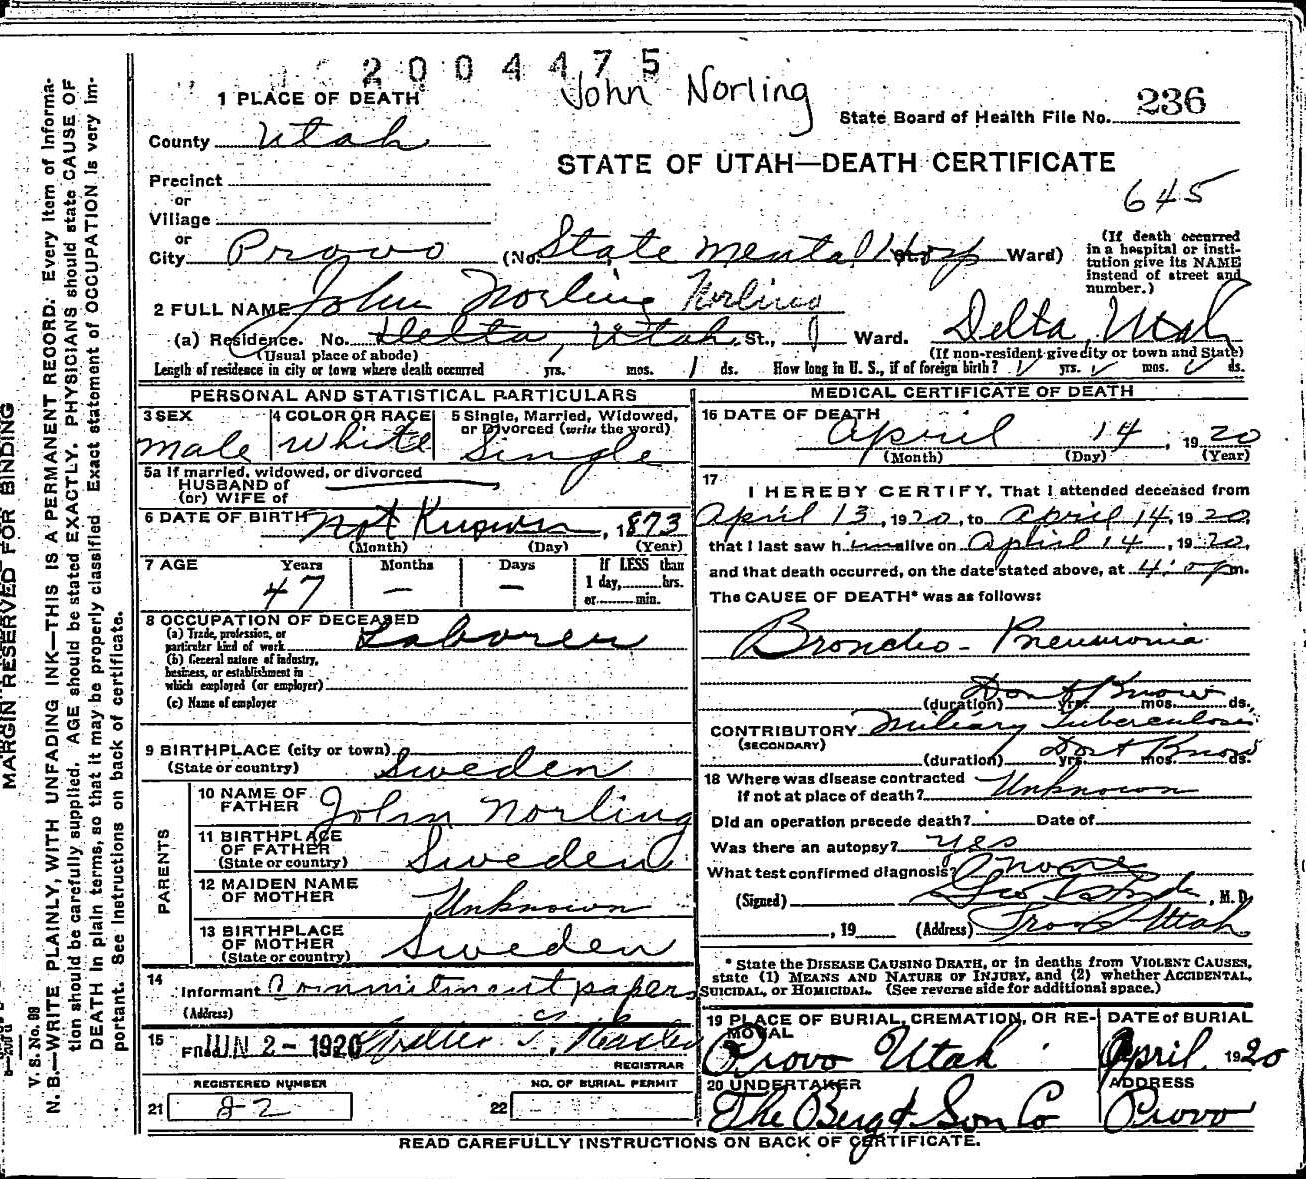 2004475
John Norling
1 PLACE OF DEATH
State Board of Health File No. 236
County Utah
STATE OF UTAH—DEATH CERTIFICATE
Precinct
or
645
Village
or
City Provo (No. State Mental Hosp St., Ward)
(If death occurred in a hospital or institution give its NAME instead of street and number.)
2 FULL NAME John Norling Norling
(a) Residence. No. Delta, Utah St., Ward. Delta, Utah
(Usual place of abode) (If non-resident give city or town and State)
Length of residence in city or town where death occurred yrs. mos. 1 ds. How long in U. S., if of foreign birth? yrs. mos. ds.
PERSONAL AND STATISTICAL PARTICULARS
3 SEX 4 COLOR OR RACE 5 Single, Married, Widowed, or Divorced (write the word)
Male White Single
5a If married, widowed, or divorced
HUSBAND of
(or) WIFE of
6 DATE OF BIRTH Not Known, 1873
(Month) (Day) (Year)
7 AGE Years Months Days If LESS than
47 — — 1 day, hrs.
or min.
8 OCCUPATION OF DECEASED
(a) Trade, profession, or particular kind of work Laborer
(b) General nature of industry, business, or establishment in which employed (or employer)
(c) Name of employer
9 BIRTHPLACE (city or town)
(State or country) Sweden
PARENTS
10 NAME OF FATHER John Norling
11 BIRTHPLACE OF FATHER
(State or country) Sweden
12 MAIDEN NAME OF MOTHER Unknown
13 BIRTHPLACE OF MOTHER
(State or country) Sweden
14
Informant Commitment papers
(Address)
15
Filed JUN 2 - 1920
REGISTRAR
REGISTERED NUMBER NO. OF BURIAL PERMIT
21 22 22
MEDICAL CERTIFICATE OF DEATH
16 DATE OF DEATH
April 14, 1920
(Month) (Day) (Year)
17
I HEREBY CERTIFY, That I attended deceased from
April 13, 1920, to April 14, 1920,
that I last saw him alive on April 14, 1920,
and that death occurred, on the date stated above, at m.
The CAUSE OF DEATH* was as follows:
Broncho-Pneumonia
Dont Know
(duration) yrs. mos. ds.,
CONTRIBUTORY Miliary Tuberculosis
(SECONDARY)
Dont Know
(duration) yrs. mos. ds.
18 Where was disease contracted
if not at place of death? Unknown
Did an operation precede death? Date of
Was there an autopsy? yes
What test confirmed diagnosis? none
(Signed) , M. D.
, 19 (Address) Provo Utah
* State the DISEASE CAUSING DEATH, or in deaths from VIOLENT CAUSES,
state (1) MEANS AND NATURE OF INJURY, and (2) whether ACCIDENTAL,
SUICIDAL, or HOMICIDAL. (See reverse side for additional space.)
19 PLACE OF BURIAL, CREMATION, OR REMOVAL DATE of BURIAL
Provo Utah April 1920
20 UNDERTAKER ADDRESS
The Berg & Son Co Provo
READ CAREFULLY INSTRUCTIONS ON BACK OF CERTIFICATE.
MARGIN RESERVED FOR BINDING
V. S. No. 98
N. B.—WRITE PLAINLY, WITH UNFADING INK—THIS IS A PERMANENT RECORD. Every item of Informa-
tion should be carefully supplied. AGE should be stated EXACTLY. PHYSICIANS should state CAUSE OF
DEATH in plain terms, so that it may be properly classified. Exact statement of OCCUPATION is very im-
portant. See Instructions on back of certificate.